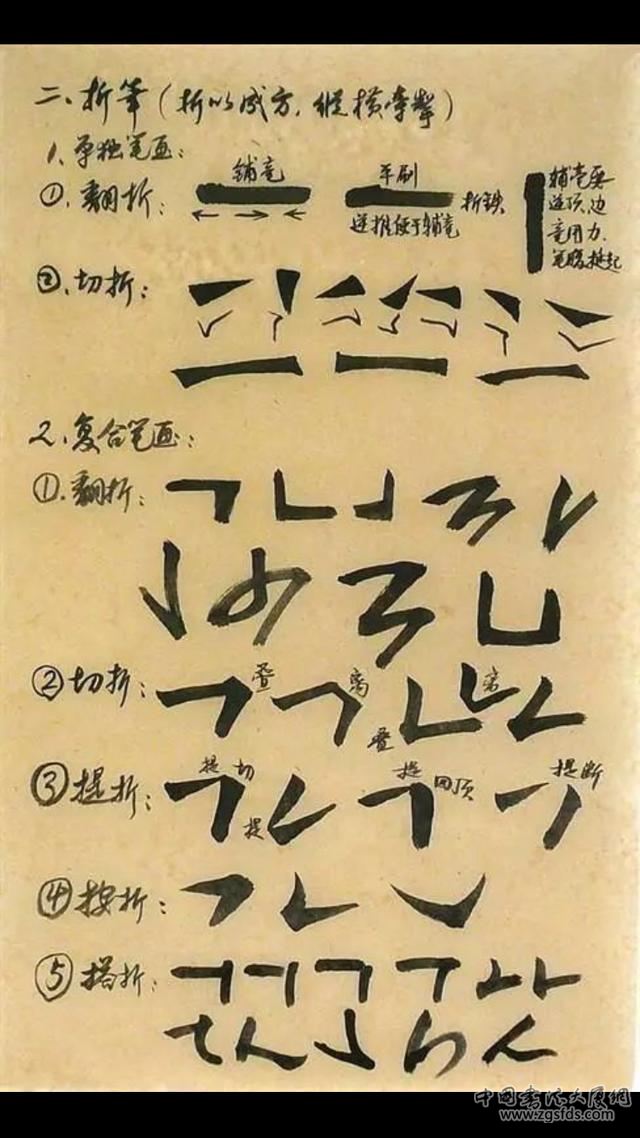 二、折笔（折以成方，纵横牵掣）
1、单独笔画：
①、翻折：
铺毫
平刷
逆推便于铺毫
折铁
铺毫要
逆顶,边
毫用力,
笔腹挺起
②、切折：
2、复合笔画：
①、翻折：
②切折：
叠
离
叠
离
③提折：
提
切
提
提
回顶
提断
④按折：
⑤搭折：
中国书法大厦网
www.zgsfds.com